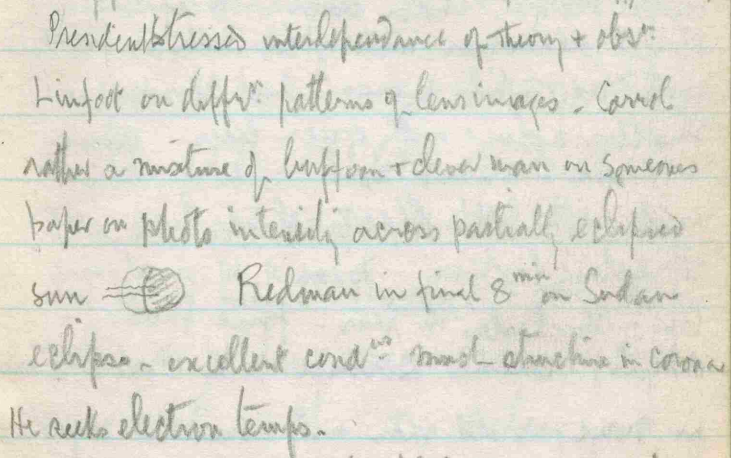 President stressed interdependance of theory + obsn.
Linfoot on diffrn. patterns of lens images. Carrol
rather a mixture of buffoon + clever man on someones
paper on photo intensity across partially eclipsed
sun Redman in final 8 min on Sudan
eclipse - excellent condns. much structure in corona
He seeks electron temps.